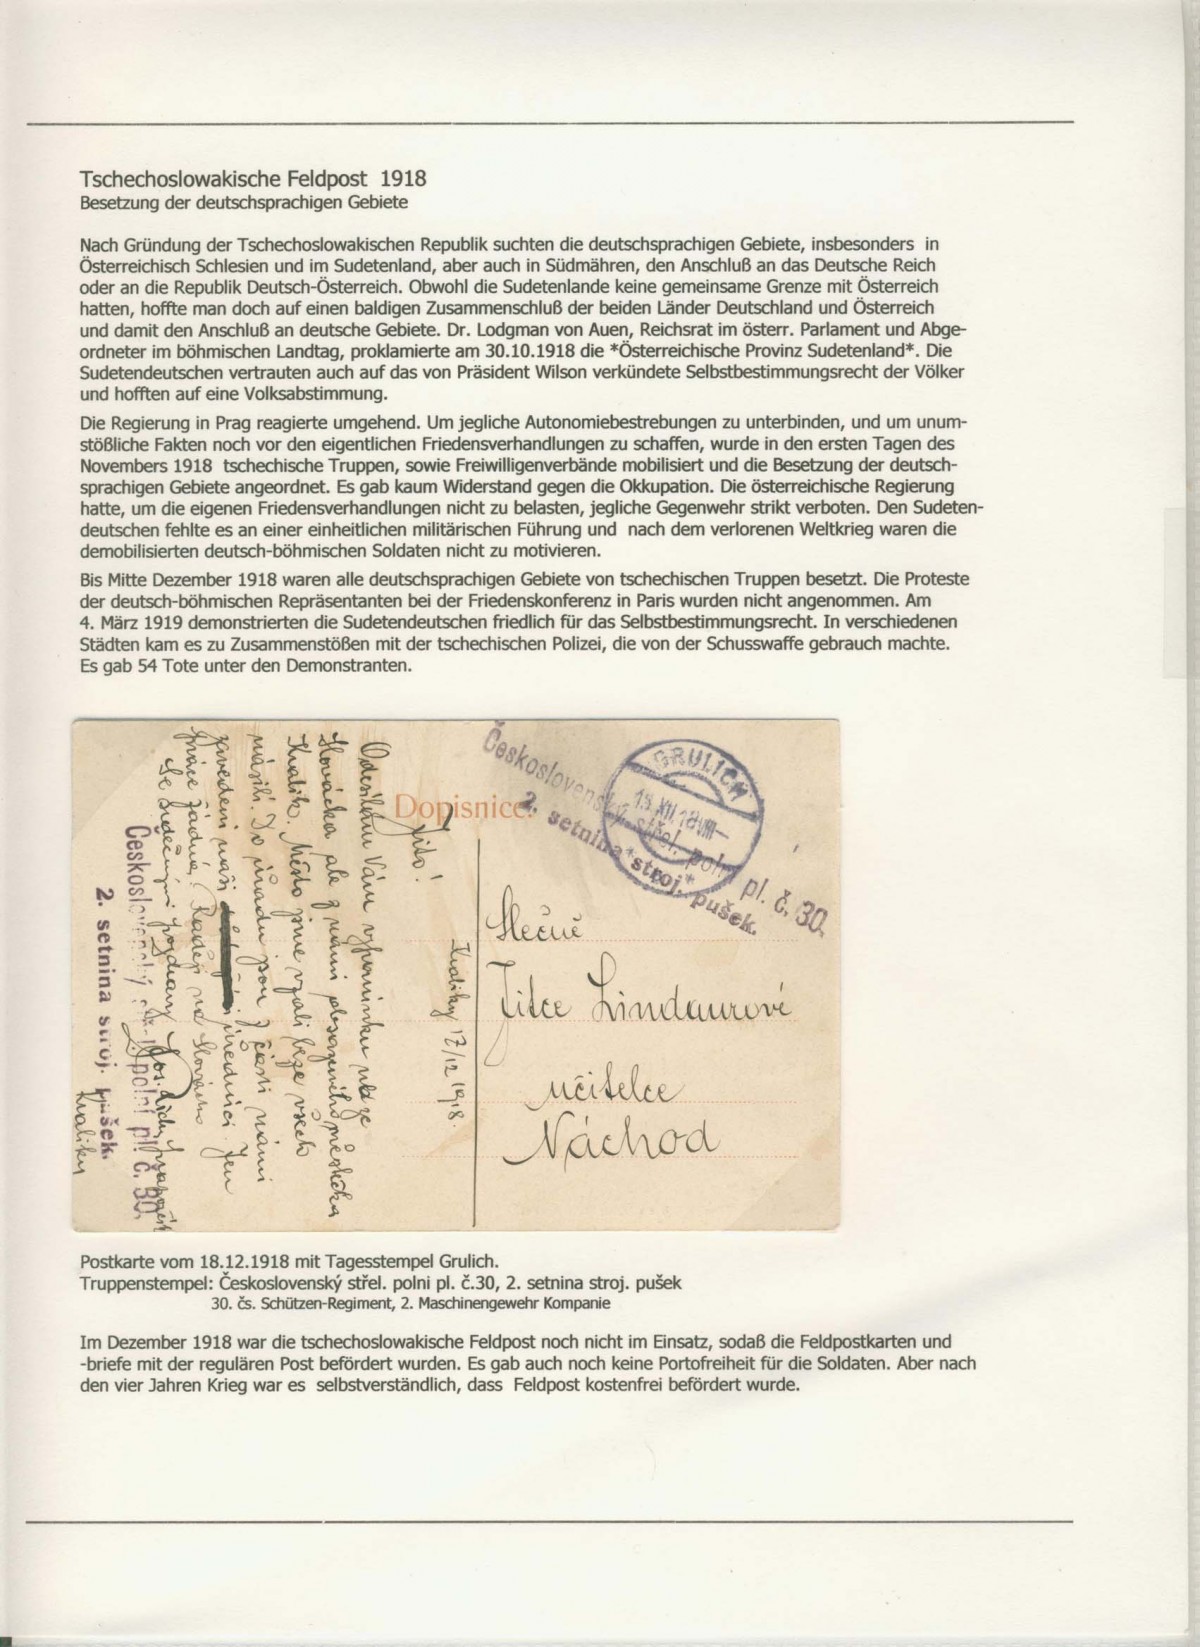 Tschechoslowakische Feldpost 1918
Besetzung der deutschsprachigen Gebiete
Nach Gründung der Tschechoslowakischen Republik suchten die deutschsprachigen Gebiete, insbesonders in
Österreichisch Schlesien und im Sudetenland, aber auch in Südmähren, den Anschluß an das Deutsche Reich
oder an die Republik Deutsch-Österreich. Obwohl die Sudetenlande keine gemeinsame Grenze mit Österreich
hatten, hoffte man doch auf einen baldigen Zusammenschluß der beiden Länder Deutschland und Österreich
und damit den Anschluß an deutsche Gebiete. Dr. Lodgman von Auen, Reichsrat im österr. Parlament und Abge-
ordneter im böhmischen Landtag, proklamierte am 30.10.1918 die *Österreichische Provinz Sudetenland*. Die
Sudetendeutschen vertrauten auch auf das von Präsident Wilson verkündete Selbstbestimmungsrecht der Völker
und hofften auf eine Volksabstimmung.
Die Regierung in Prag reagierte umgehend. Um jegliche Autonomiebestrebungen zu unterbinden, und um unum-
stößliche Fakten noch vor den eigentlichen Friedensverhandlungen zu schaffen, wurde in den ersten Tagen des
Novembers 1918 tschechische Truppen, sowie Freiwilligenverbände mobilisiert und die Besetzung der deutsch-
sprachigen Gebiete angeordnet. Es gab kaum Widerstand gegen die Okkupation. Die österreichische Regierung
hatte, um die eigenen Friedensverhandlungen nicht zu belasten, jegliche Gegenwehr strikt verboten. Den Sudeten-
deutschen fehlte es an einer einheitlichen militärischen Führung und nach dem verlorenen Weltkrieg waren die
demobilisierten deutsch-böhmischen Soldaten nicht zu motivieren.
Bis Mitte Dezember 1918 waren alle deutschsprachigen Gebiete von tschechischen Truppen besetzt. Die Proteste
der deutsch-böhmischen Repräsentanten bei der Friedenskonferenz in Paris wurden nicht angenommen. Am
4. März 1919 demonstrierten die Sudetendeutschen friedlich für das Selbstbestimmungsrecht. In verschiedenen
Städten kam es zu Zusammenstößen mit der tschechischen Polizei, die von der Schusswaffe gebrauch machte.
Es gab 54 Tote unter den Demonstranten.
Dopisnice.
Československý střel. polní pl. č. 30.
2. setnina stroj. pušek.
GRULICH
18.XII.18 VIII
Slečně
Jitce Lindaurové
učitelce
Náchod
Králíky 17/12 1918.
Jito!
Odesílám Vám vzpomínku ne ze
Slovácka ale z námi obsazeného městečka
Králík. Město jsme vzali beze všeho
násilí. Do úřadu jsou z části námi
zavedeni naši úředníci. Jen
práce žádná. Raději na Slovácko
Se srdečným pozdravy
Československý střel. polní pl. č. 30.
2. setnina stroj. pušek.
Králíky
Postkarte vom 18.12.1918 mit Tagesstempel Grulich.
Truppenstempel: Československý střel. polni pl. č.30, 2. setnina stroj. pušek
30. čs. Schützen-Regiment, 2. Maschinengewehr Kompanie
Im Dezember 1918 war die tschechoslowakische Feldpost noch nicht im Einsatz, sodaß die Feldpostkarten und
-briefe mit der regulären Post befördert wurden. Es gab auch noch keine Portofreiheit für die Soldaten. Aber nach
den vier Jahren Krieg war es selbstverständlich, dass Feldpost kostenfrei befördert wurde.